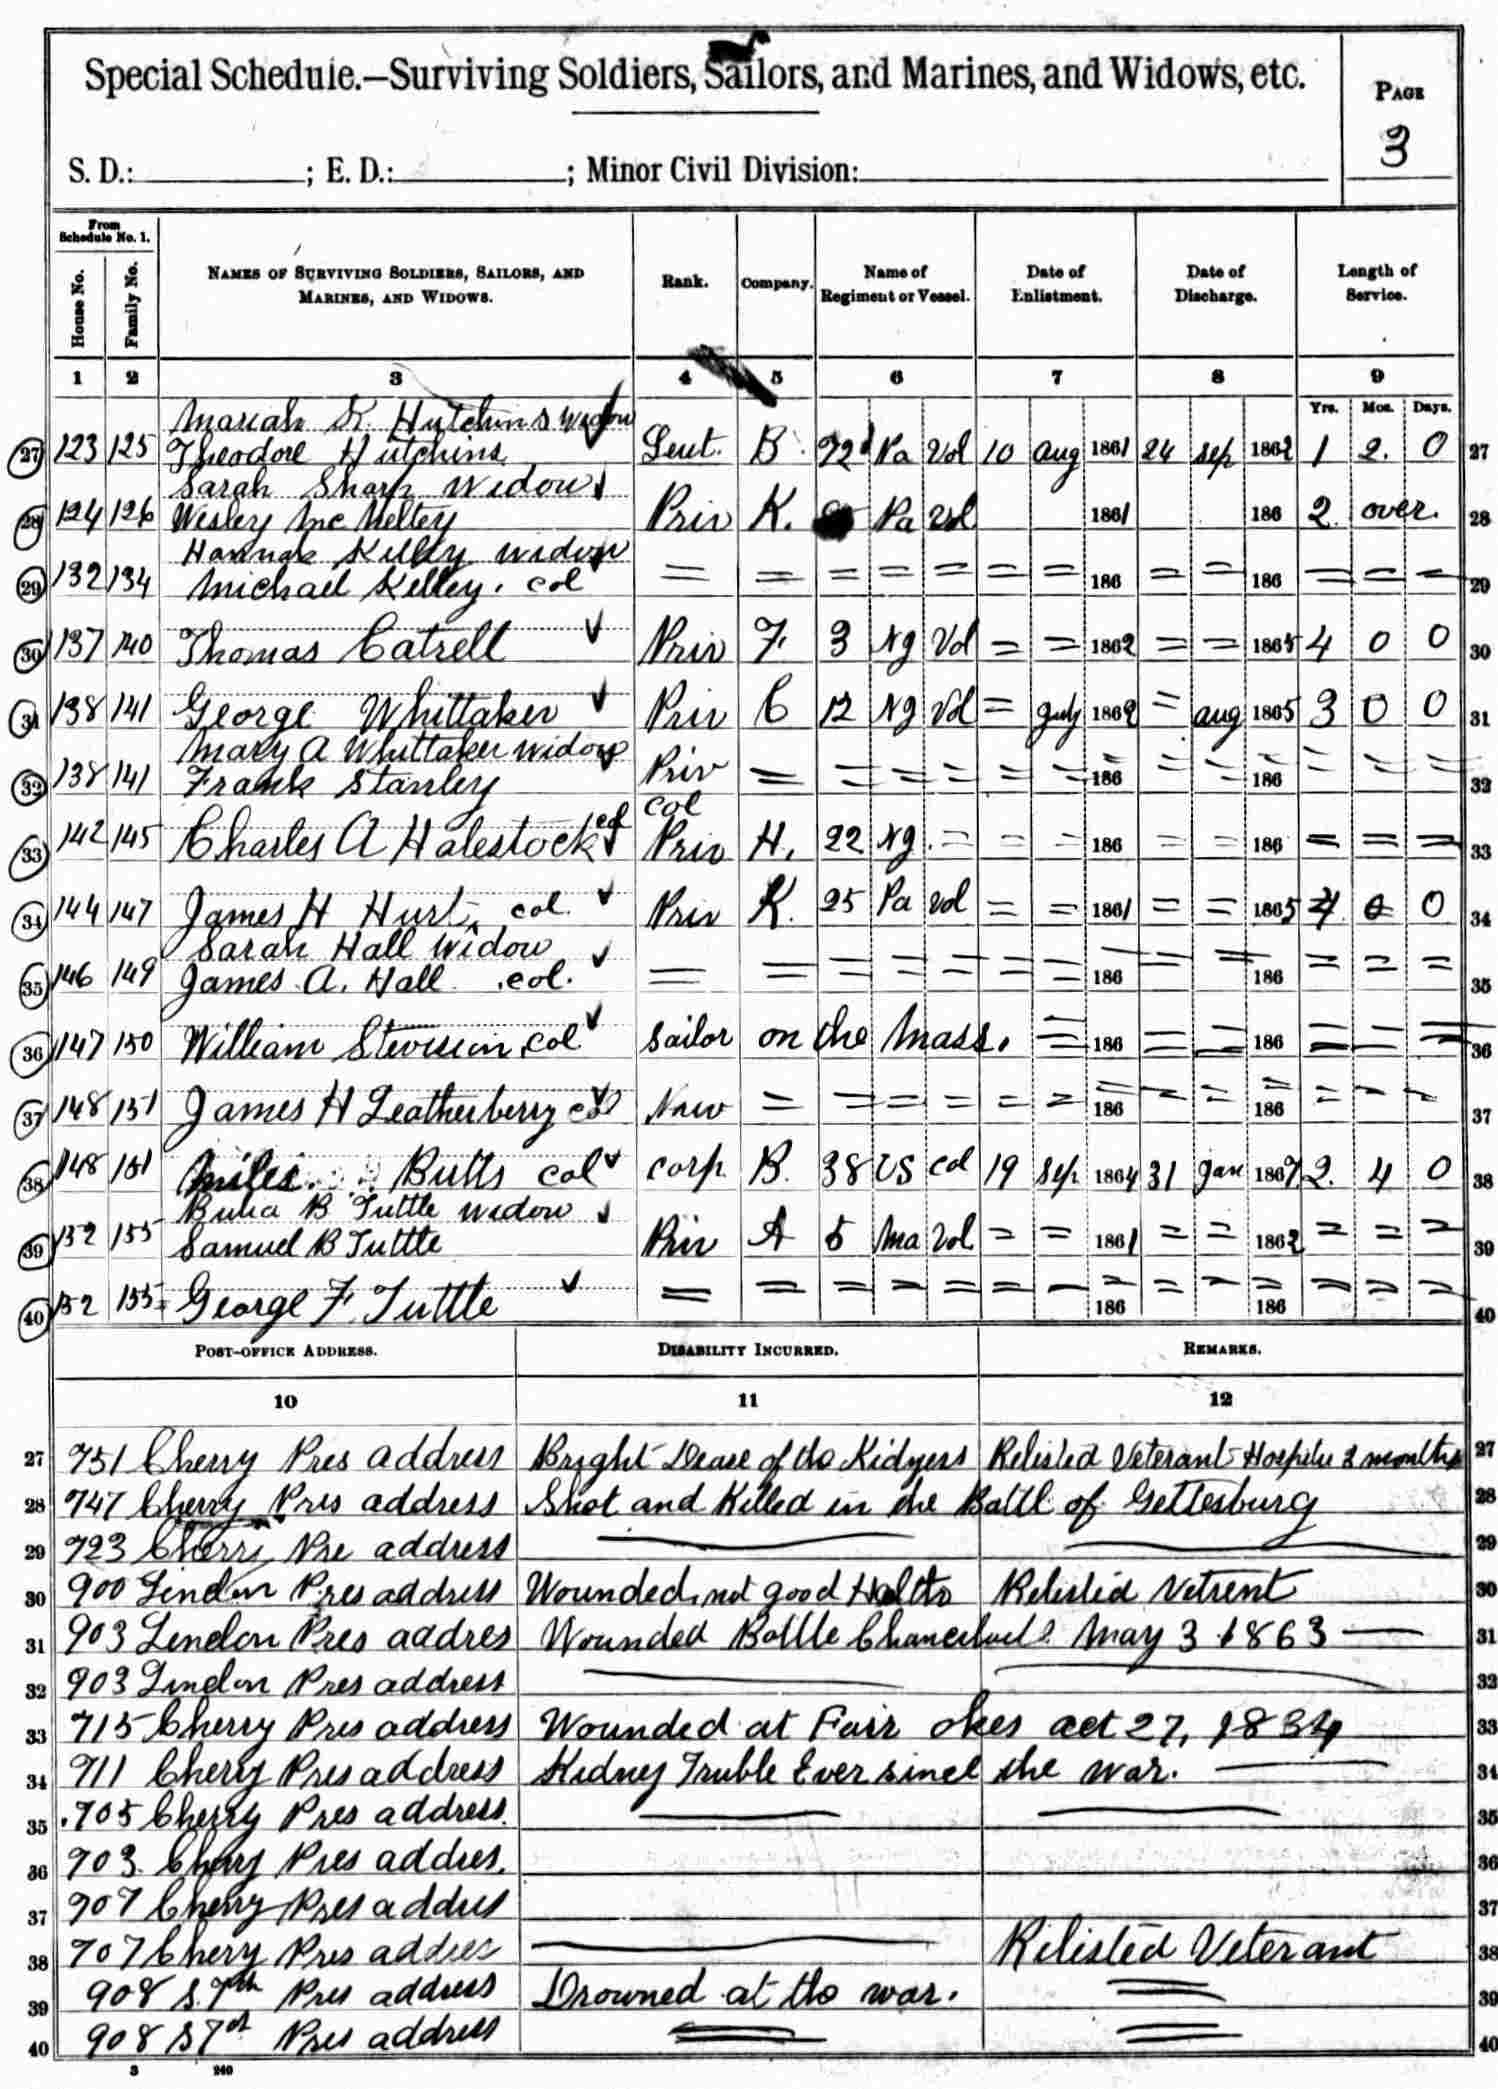 Special Schedule.—Surviving Soldiers, Sailors, and Marines, and Widows, etc.
PAGE
3
S. D.: ; E. D.: ; Minor Civil Division:
From Schedule No. 1.
House No.
Family No.
NAMES OF SURVIVING SOLDIERS, SAILORS, AND MARINES, AND WIDOWS.
Rank.
Company.
Name of Regiment or Vessel.
Date of Enlistment.
Date of Discharge.
Length of Service.
1 2 3 4 5 6 7 8 9
Yrs. Mos. Days.
Mariah K. Hutchins widow
27 123 125 Theodore Hutchins Leut. B. 72d Pa Vol 10 aug 1861 24 sep 1862 1 2. 0 27
Sarah Sharp widow
28 124 126 Wesley Mc Nelty Priv K. Pa Vol 1861 186 2 over. 28
Hannah Kelley widow
29 132 134 Michael Kelley. col = = = = = = = 186 = = 186 = = = 29
30 137 140 Thomas Catrell Priv F. 3 Ng Vol = = 1862 = = 1865 4 0 0 30
31 138 141 George Whittaker Priv C 12 Ng Vol = July 1862 = aug 1865 3 0 0 31
Mary A Whittaker widow
32 138 141 Frank Stanley Priv = = = = = = 186 = = 186 = = = 32
col
33 142 145 Charles A Halestock col Priv H. 22 Ng. = = = 186 = = 186 = = = 33
34 144 147 James H Hurt, col. Priv K. 25 Pa Vol = = 1861 = = 1865 4 0 0 34
Sarah Hall widow
35 146 149 James A. Hall .col. = = = = = = = 186 = = 186 = = = 35
36 147 150 William Stevesen, col Sailor on the Mass. = 186 = = 186 = = = 36
37 148 151 James H Leatherberry col = = = = = = 186 = = 186 = = = 37
38 148 151 Miles Butts col corp B. 38 US col 19 Sep 1864 31 Jan 1867 2. 4 0 38
B Tuttle widow
39 152 155 Samuel B Tuttle Priv A 5 Ma Vol = = 1861 = = 1862 = = = 39
40 152 155 George F. Tuttle = = = = = = = = 186 = = 186 = = = 40
POST-OFFICE ADDRESS.
DISABILITY INCURRED.
REMARKS.
10 11 12
27 751 Cherry Pres address Bright Dease of the Kidyers Relisted Veterant 2 months 27
28 747 Cherry Pres address Shot and Killed in the Battl of Gettesburg 28
29 723 Cherry Pre address 29
30 900 Lindon Pres address Wounded, not good Halth Relisted Vetrent 30
31 903 Lindon Pres addres Wounded Battle May 3 1863 31
32 903 Lindon Pres address 32
33 715 Cherry Pres address Wounded at Fair okes oct 27, 1834 33
34 711 Cherry Pres address Kidney Truble Ever since the war. 34
35 .705 Cherry Pres address. 35
36 703 Cherry Pres addres. 36
37 707 Cherry Pres addres 37
38 707 Cherry Pres addres Relisted Veterant 38
39 908 S. 7th Pres address Drowned at the war. 39
40 908 S 7st Pres address 40
3 240